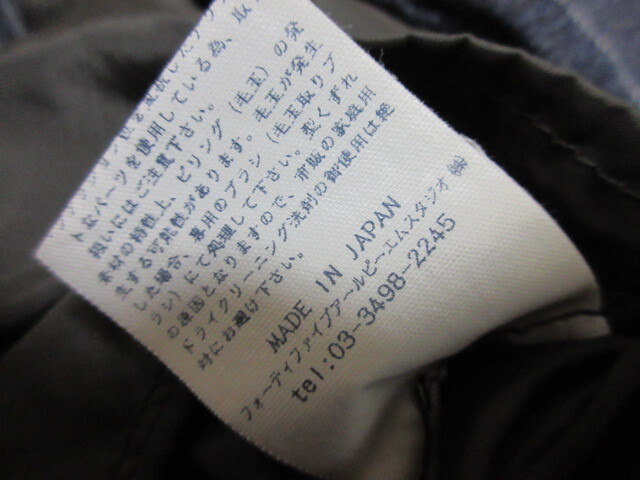 トなパーツを使用している為、取
扱いにはご注意下さい。
素材の特性上、ピリング（毛玉）の発
生する可能性があります。毛玉が発生
した場合、専用のブラシ（毛玉取りブ
ラシ）にて処理して下さい。型くずれ
の原因となりますので、市販の家庭用
ドライクリーニング洗剤の御使用は絶
対にお避け下さい。
MADE IN JAPAN
フォーティファイブアールピーエムスタジオ㈱
tel:03-3498-2245